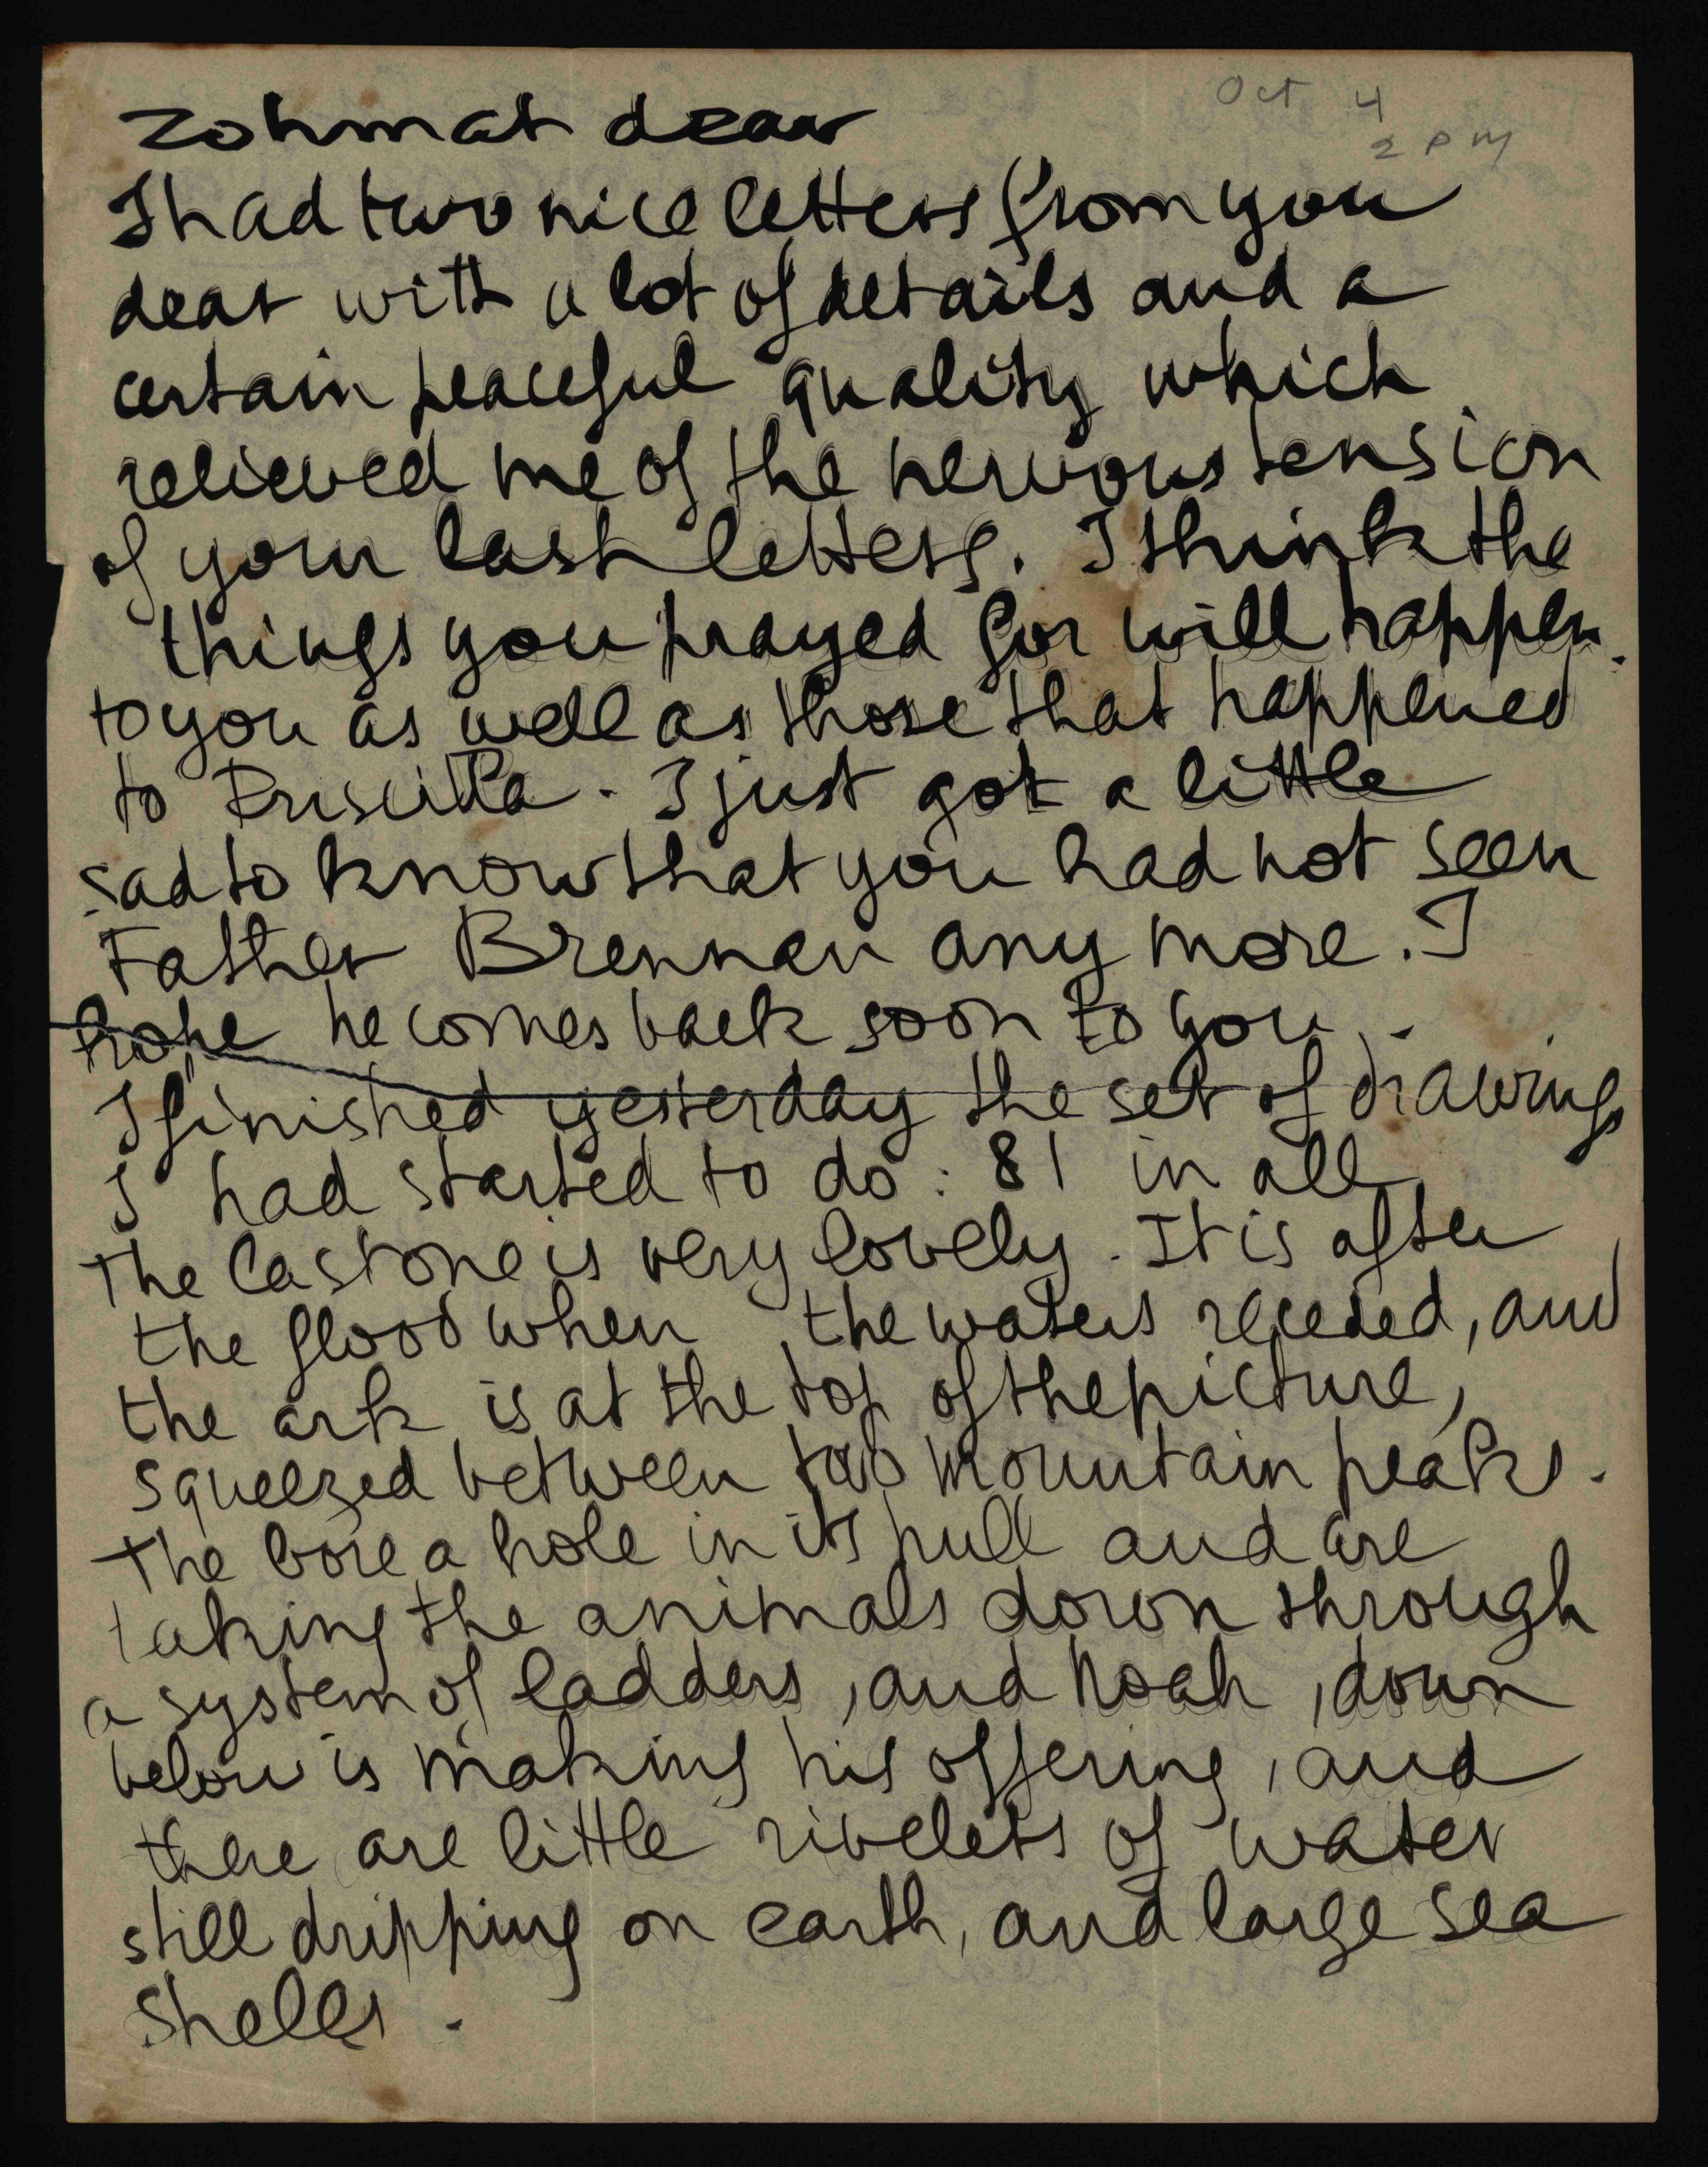 Oct 4
2 PM
Zohmah dear
I had two nice letters from you
dear with a lot of details and a
certain peaceful quality which
relieved me of the nervous tension
of your last letters. I think the
things you prayed for will happen
to you as well as those that happened
to Priscilla. I just got a little
sad to know that you had not seen
Father Brennan any more. I
hope he comes back soon to you.-
I finished yesterday the set of drawings
I had started to do: 81 in all
The last one is very lovely. It is after
the flood when the waters receded, and
the ark is at the top of the picture,
squeezed between two mountain peaks.
The bore a hole in its hull and are
taking the animals down through
a system of ladders, and Noah, down
below is making his offering, and
there are little rivelets of water
still dripping on earth, and large sea
shells.-